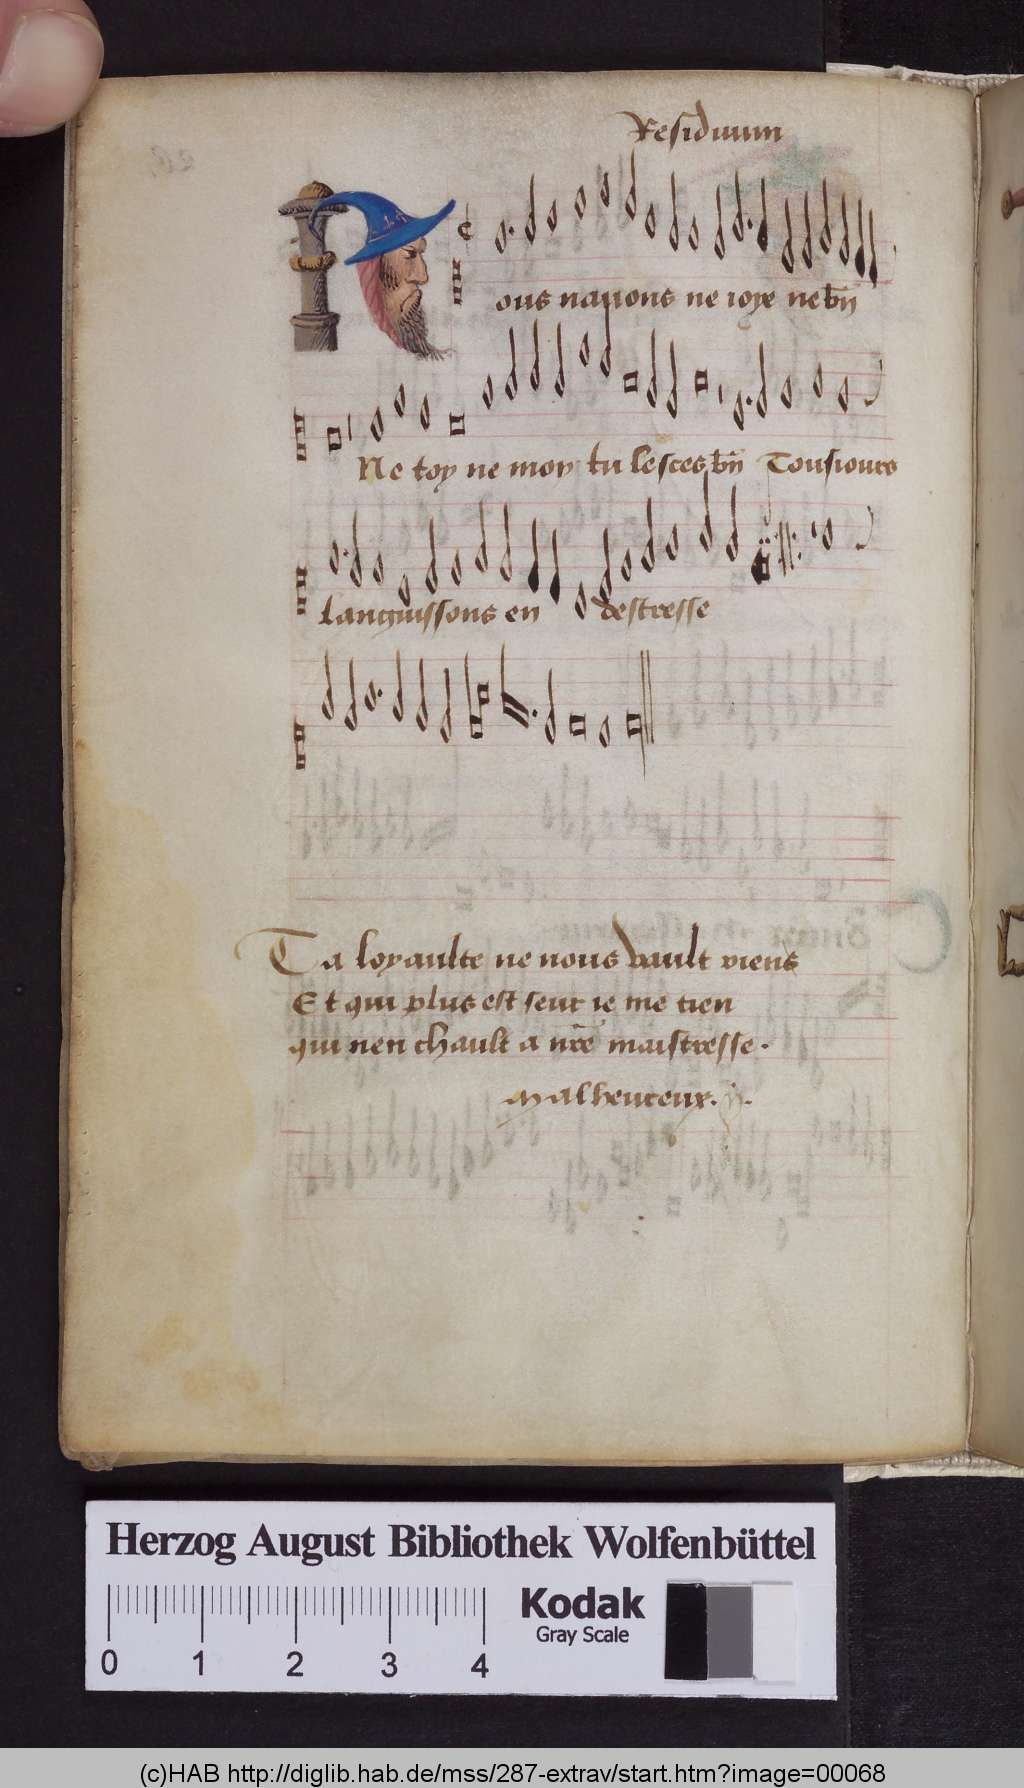 Residuum
Nous nauons ne ioye ne bñ
Ne toy ne moy tu lesces bñ Tousiours
languissons en destresse
Ta loyaulte ne nous vault riens
Et qui plus est seur ie me tien
qui nen chault a nr̃e maistresse .
Malheureux.
Herzog August Bibliothek Wolfenbüttel
Kodak
Gray Scale
0 1 2 3 4
(c)HAB http://diglib.hab.de/mss/287-extrav/start.htm?image=00068